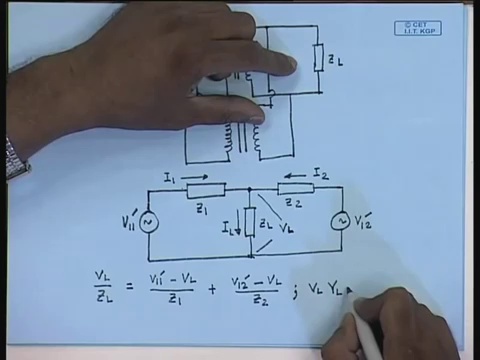 © CET
I.I.T. KGP
Z_L
I_1
I_2
Z_1
Z_2
V_11'
I_L
Z_L
V_L
V_12'
V_L/Z_L = (V_11' - V_L)/Z_1 + (V_12' - V_L)/Z_2 ; V_L Y_L